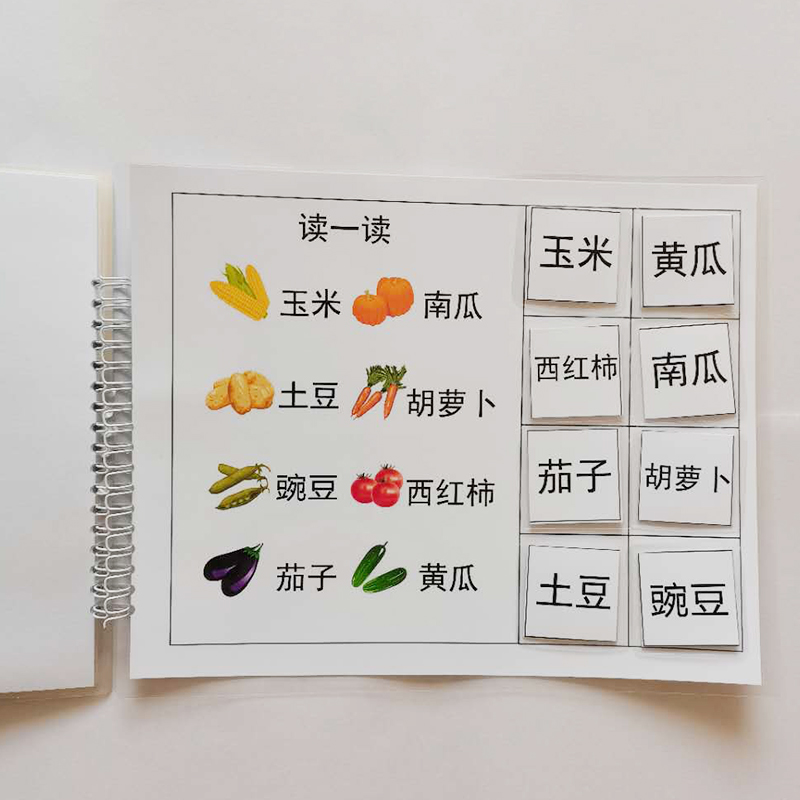 读一读
玉米 南瓜
土豆 胡萝卜
豌豆 西红柿
茄子 黄瓜
玉米 黄瓜
西红柿 南瓜
茄子 胡萝卜
土豆 豌豆